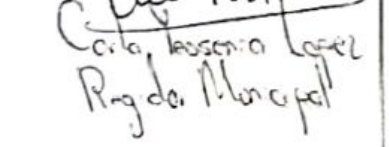 Carla Yessenia Lopez
Regidor Municipal